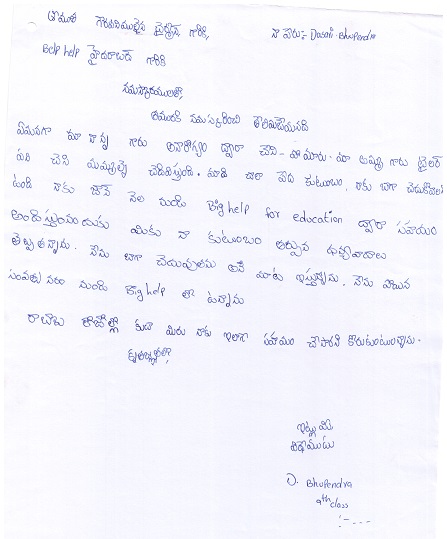 గౌరవనీయులైన చైర్మన్ గారికి, నా పేరు:- Dasari Bhupendra
Belp help హైదరాబాద్ గారికి
నమస్కారములతో,
నమస్కరించి తెలియజేయునది
ఏమనగా మా నాన్న గారు అనారోగ్యం ద్వారా చని- పోయారు. మా అమ్మ గారు టైలర్
పని చేసి మమ్మల్ని చదివిస్తుంది. మాది చాలా పేద కుటుంబం. నాకు బాగా చదుకోవాలని
ఉంది నాకు జూన్ నెల నుండి Big help for education ద్వారా సహాయం
అందిస్తున్నందుకు మీకు నా కుటుంబం తరుపున ధన్యవాదాలు
తెల్పుతన్నాను. నేను బాగా చదువుతను అని మాట ఇస్తున్నాను. నేను పోయిన
సంవత్సరం నుండి Big help లో ఉన్నాను
రాబోయే రోజుల్లో కుడా మీరు నాకు ఇలాగే సహాయం చేస్తారని కోరుకుంటున్నాను.
కృతజ్ఞతలతో,
ఇట్లు మీ
విధేయుడు
D. Bhupendra
9th class